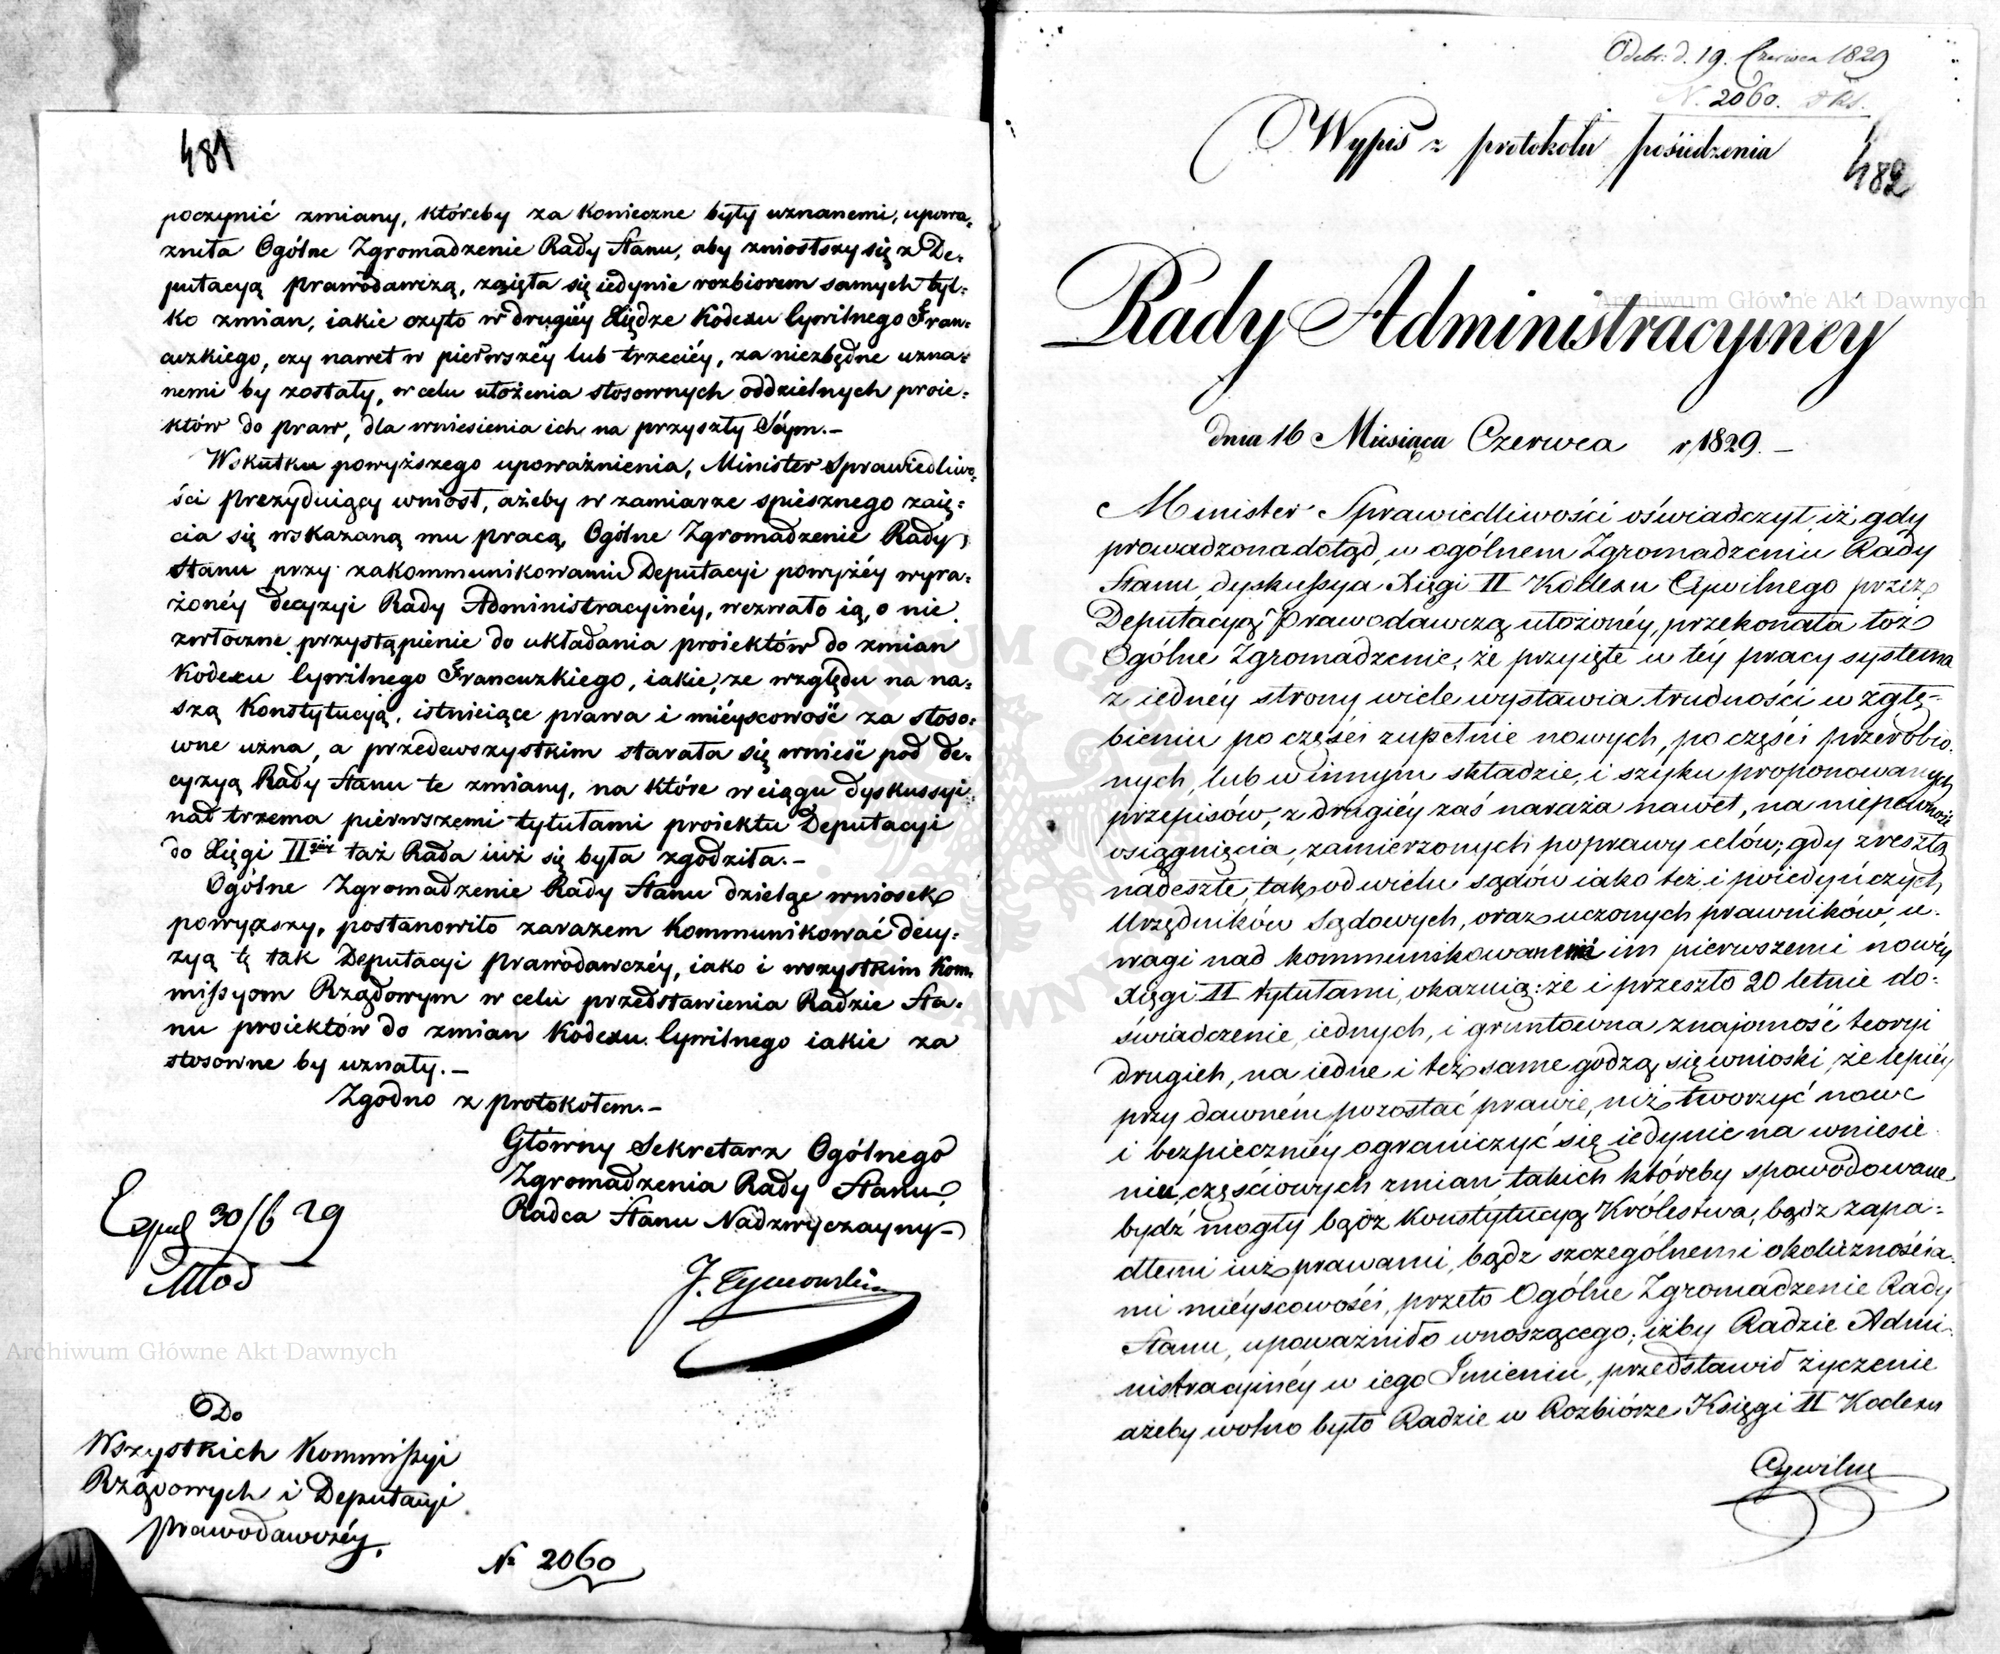 481
poczynić zmiany, któreby za konieczne były uznanemi, upowa-
żniła Ogólne Zgromadzenie Rady Stanu, aby zniosłszy się z De-
putacyą prawodawczą, zajęła się iedynie rozbiorem samych tyl-
ko zmian, iakie czyto w drugiéy Xiędze Kodexu Cywilnego Fran-
cuzkiego, czy nawet w pierwszéy lub trzeciéy, za niezbędne uzna-
nemi by zostały, w celu ułożenia stosownych oddzielnych proie-
któw do praw, dla wniesienia ich na przyszły Séym.-
Wskutku powyższego upoważnienia, Minister Sprawiedliwo-
ści prezyduiący wniosł, ażeby w zamiarze spiesznego zaię-
cia się wskazaną mu pracą, Ogólne Zgromadzenie Rady
Stanu przy zakommunikowaniu Deputacyi powyżéy wyra-
żonéy decyzyi Rady Administracyinéy, wezwało ią, o nie
zwłoczne przystąpienie do układania proiektów do zmian
Kodexu Cywilnego Francuzkiego, iakie, ze względu na na-
szą Konstytucyią, istnieiące prawa i mieyscowość za stoso-
wne uzna, a przedewszystkim starała się wnieść pod de-
cyzyą Rady Stanu te zmiany, na które w ciągu dyskussyi
nad trzema pierwszemi tytułami proiektu Deputacyi
do Xięgi II giéy taż Rada iuż się była zgodziła.-
Ogólne Zgromadzenie Rady Stanu dzieląc wniosek
powyższy, postanowiło zarazem kommunikować decy-
zyą tę tak Deputacyi prawodawczéy, iako i wszystkim Kom-
missyom Rządowym w celu przedstawienia Radzie Sta-
nu proiektów do zmian Kodexu Cywilnego iakie za
stosowne by uznały.-
Zgodno z protokołem.-
Główny Sekretarz Ogólnego
Zgromadzenia Rady Stanu
Radca Stanu Nadzwyczayny
30/6 29
Do
Wszystkich Kommissyi
Rządowych i Deputacyi
prawodawczéy.
N 2060
Odebr: d. 19. Czerwca 1829
N. 2060.
Wypis z protokołu posiedzenia
482
Rady Administracyiney
dnia 16 Miesiąca Czerwca r. 1829.-
Minister Sprawiedliwości oświadczył, iż gdy
prowadzona dotąd, w ogólnem Zgromadzeniu Rady
Stanu, dyskussya Xięgi II Kodexu Cywilnego przez
Deputacyą Prawodawczą ułożonéy, przekonała toż
Ogólne Zgromadzenie, że przyięte w téy pracy systema
z iednéy strony wiele wystawia trudności w zgłę-
bieniu po części zupełnie nowych, po części przerobio-
nych, lub w innym składzie, i szyku proponowanych
przepisów, z drugiéy zaś naraża nawet, na niepewność
osiągnięcia, zamierzonych poprawy celów; gdy zresztą
nadeszłe, tak od wielu sądów iako też i poiedyńczych
Urzędników Sądowych, oraz uczonych prawników, u-
wagi nad kommunikowanemi im pierwszemi nowéy
Xięgi II tytułami, okazuią: że i przeszło 20 letnie do-
świadczenie, iednych, i gruntowna znajomość teoryi
drugich, na iedne i też same godzą się wnioski, że lepiéy
przy dawném pozostać prawie, niż tworzyć nowe
i bezpieczniéy ograniczyć się iedynie na wniesie
niu, częściowych zmian, takich któreby spowodowane
bydź mogły bądź Konstytucyą Królestwa, bądź zapa-
dłemi iuż prawami, bądź szczególnemi okolicznościa-
mi mieyscowości, przeto Ogólne Zgromadzenie Rady
Stanu, upoważniło wnoszącego, iżby Radzie Admi-
nistracyinéy w iego Imieniu, przedstawił życzenie
ażeby wolno było Radzie w Rozbiórze Księgi II Kodexu
Cywilne
Archiwum Główne Akt Dawnych
Archiwum Główne Akt Dawnych